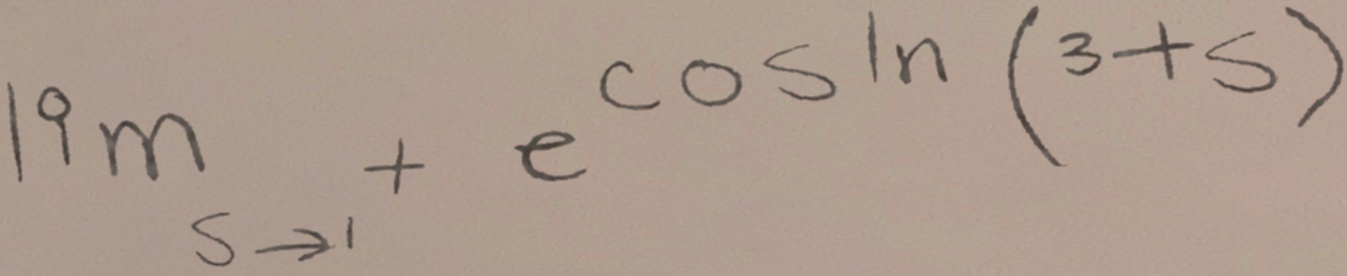 lim s→1⁺ e^cos ln (3+s)